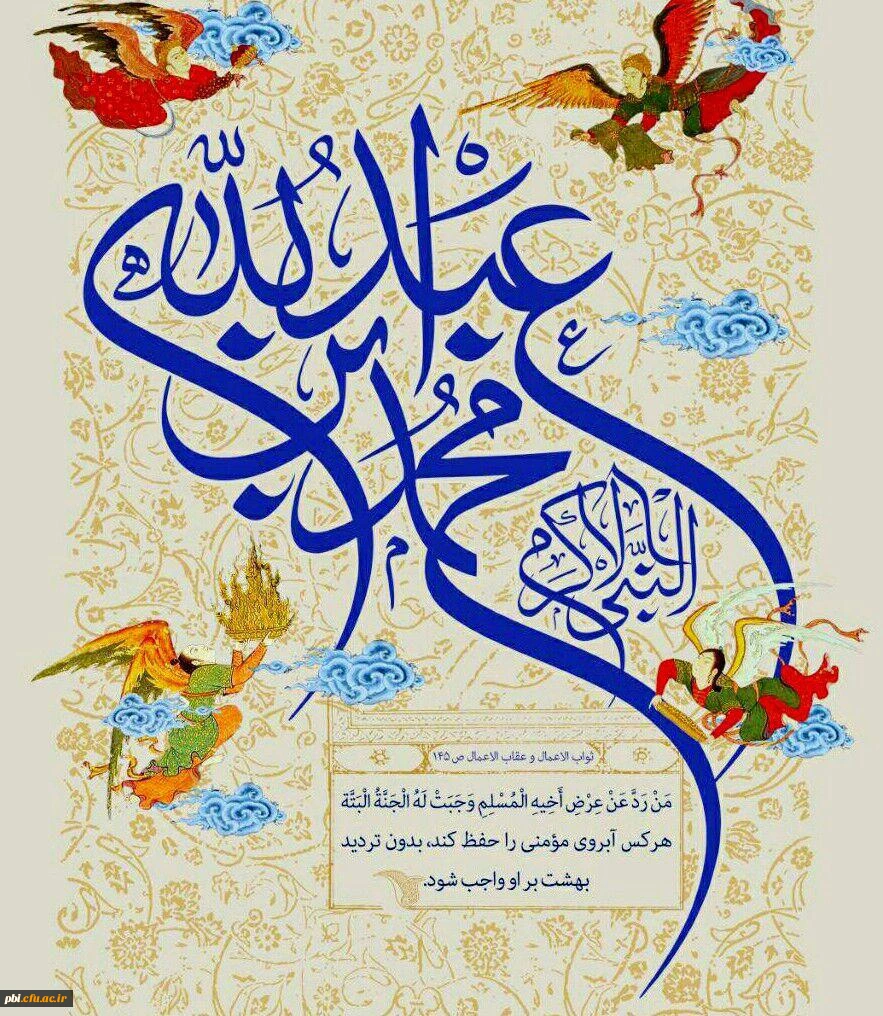 محمد ابن عبدالله
النبی الاکرم
ثواب الاعمال و عقاب الاعمال ص ۱۴۵
مَنْ رَدَّ عَنْ عِرْضِ أَخِيهِ الْمُسْلِمِ وَجَبَتْ لَهُ الْجَنَّةُ الْبَتَّة
هرکس آبروی مؤمنی را حفظ کند، بدون تردید
بهشت بر او واجب شود.
pbl.cfu.ac.ir